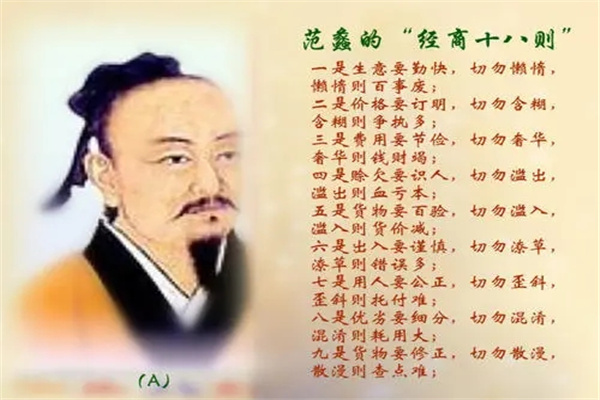 范蠡的“经商十八则”
一是生意要勤快，切勿懒惰，
懒惰则百事废；
二是价格要订明，切勿含糊，
含糊则争执多；
三是费用要节俭，切勿奢华，
奢华则钱财竭；
四是赊欠要识人，切勿滥出，
滥出则血亏本；
五是货物要百验，切勿滥入，
滥入则货价减；
六是出入要谨慎，切勿潦草，
潦草则错误多；
七是用人要公正，切勿歪斜，
歪斜则托付难；
八是优劣要细分，切勿混淆，
混淆则耗用大；
九是货物要修正，切勿散漫，
散漫则查点难；
(A)